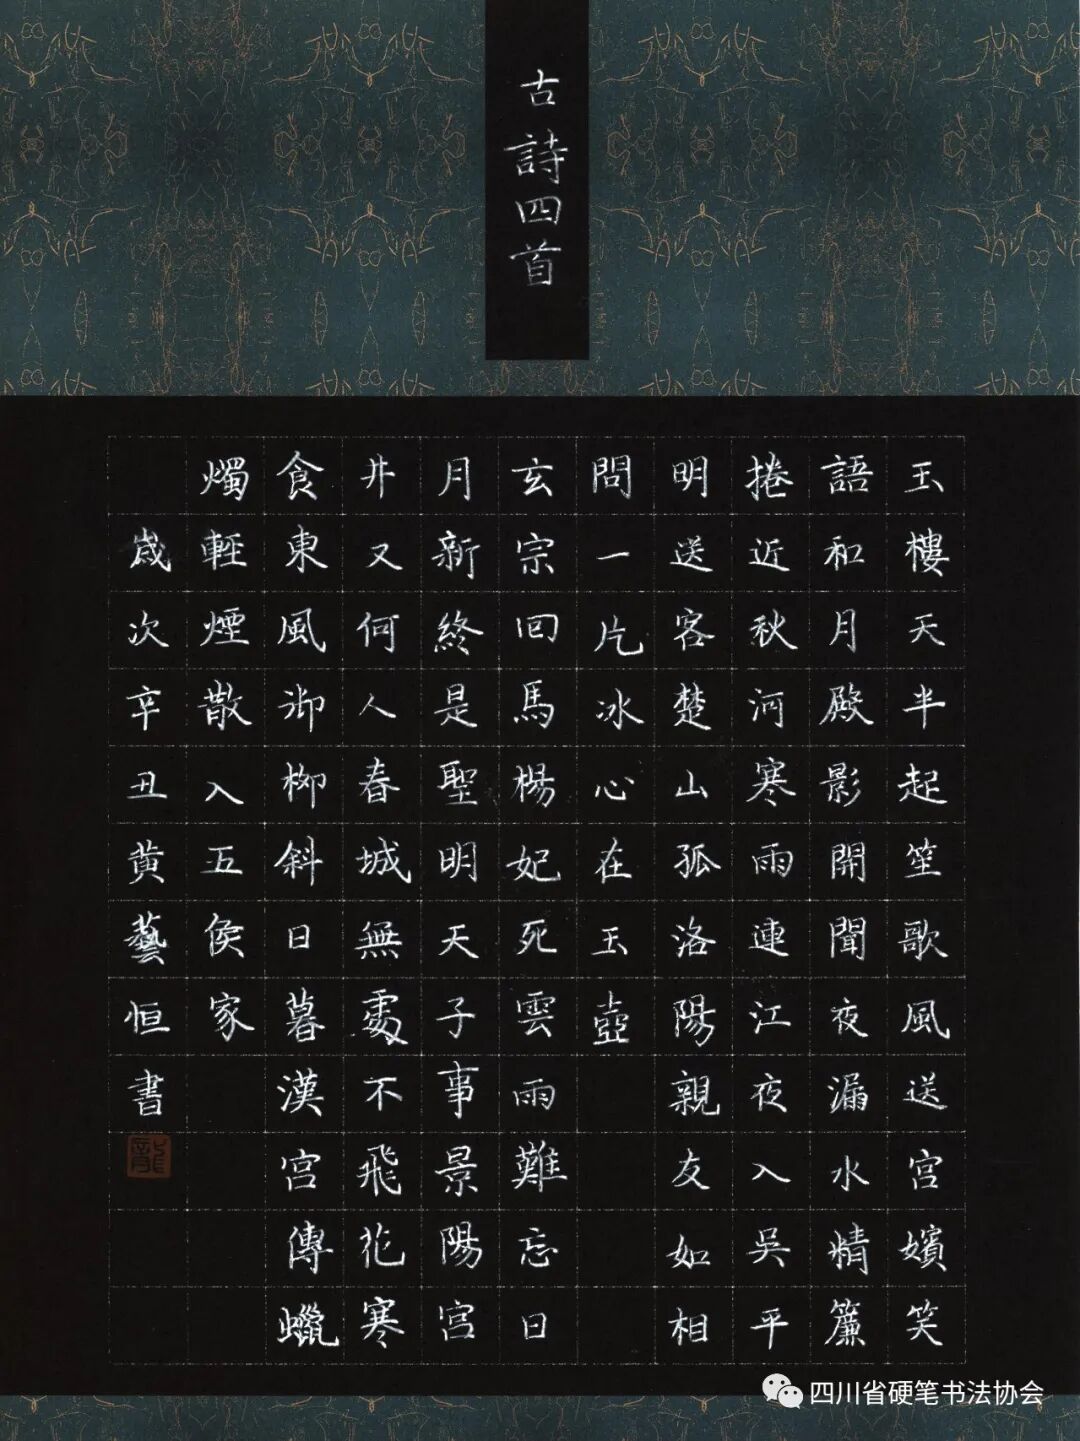 古詩四首
玉樓天半起笙歌風送宮嬪笑
語和月殿影開聞夜漏水精簾
捲近秋河寒雨連江夜入吳平
明送客楚山孤洛陽親友如相
問一片冰心在玉壺
玄宗回馬楊妃死雲雨難忘日
月新終是聖明天子事景陽宮
井又何人春城無處不飛花寒
食東風御柳斜日暮漢宮傳蠟
燭輕煙散入五侯家
歲次辛丑黄藝恒書
龍
四川省硬笔书法协会